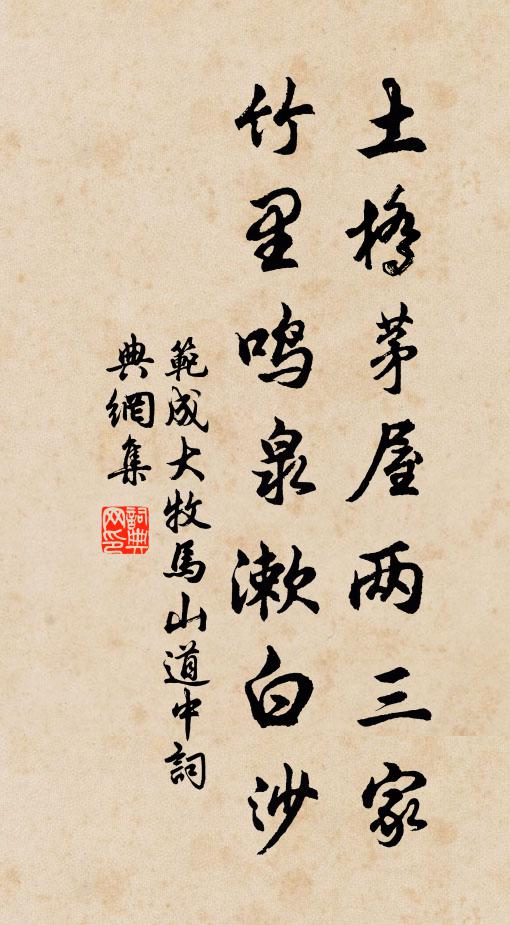 土橋茅屋两三家
竹里鸣泉漱白沙
範成大牧馬山道中詞
典網集
詞典
网印